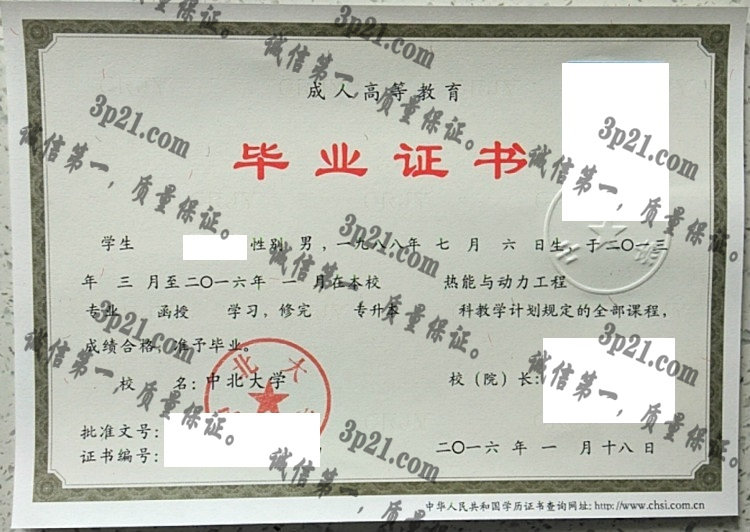 成人高等教育
毕业证书
学生 性别 男，一九八八年 七 月 六 日生，于二〇一三
年 三 月至二〇一六年 一 月在本校 热能与动力工程
专业 函授 学习，修完 专升本 科教学计划规定的全部课程，
成绩合格，准予毕业。
校 名：中北大学 校（院）长：
北大
批准文号：
证书编号：
二〇一六 年 一 月 十八 日
中华人民共和国学历证书查询网址：http://www.chsi.com.cn
3p21.com
诚信第一，质量保证。
3p21.com
诚信第一，质量保证。
3p21.com
诚信第一，质量保证。
3p21.com
诚信第一，质量保证。
3p21.com
诚信第一，质量保证。
3p21.com
诚信第一，质量保证。
3p21.com
诚信第一，质量保证。
3p21.com
诚信第一，质量保证。